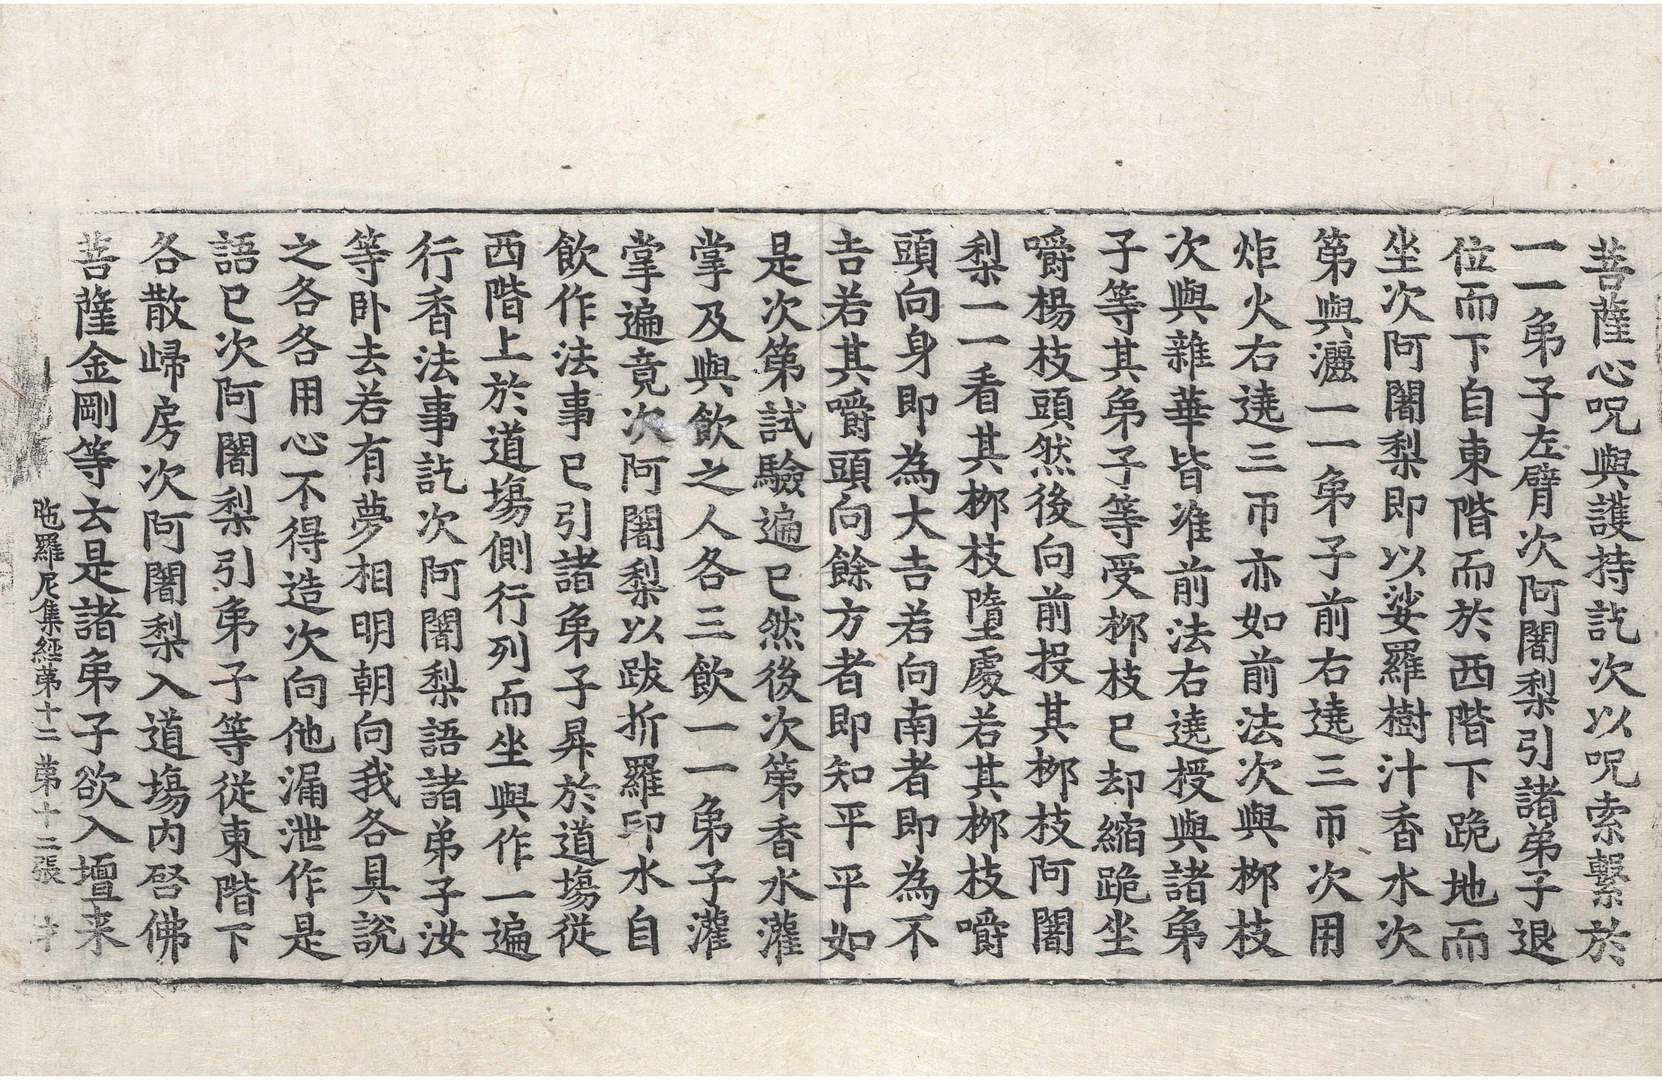 菩薩心呪與護持訖次以呪索繫於
一一弟子左臂次阿闍梨引諸弟子退
位而下自東階而於西階下跪地而
坐次阿闍梨即以娑羅樹汁香水次
第與灑一一弟子前右遶三帀次用
炬火右遶三帀亦如前法次與桞枝
次與雜華皆准前法右遶授與諸弟
子等其弟子等受桞枝已却縮跪坐
嚼楊枝頭然後向前投其桞枝阿闍
梨一一看其桞枝墮處若其桞枝嚼
頭向身即為大吉若向南者即為不
吉若其嚼頭向餘方者即知平平如
是次第試驗遍已然後次第香水灌
掌及與飲之人各三飲一一弟子灌
掌遍竟次阿闍梨以跋折羅印水自
飲作法事已引諸弟子昇於道塲從
西階上於道塲側行列而坐與作一遍
行香法事訖次阿闍梨語諸弟子汝
等卧去若有夢相明朝向我各具說
之各各用心不得造次向他漏泄作是
語已次阿闍梨引弟子等從東階下
各散歸房次阿闍梨入道塲內啓佛
菩薩金剛等云是諸弟子欲入壇来
陁羅尼集經第十二 第十二張 才